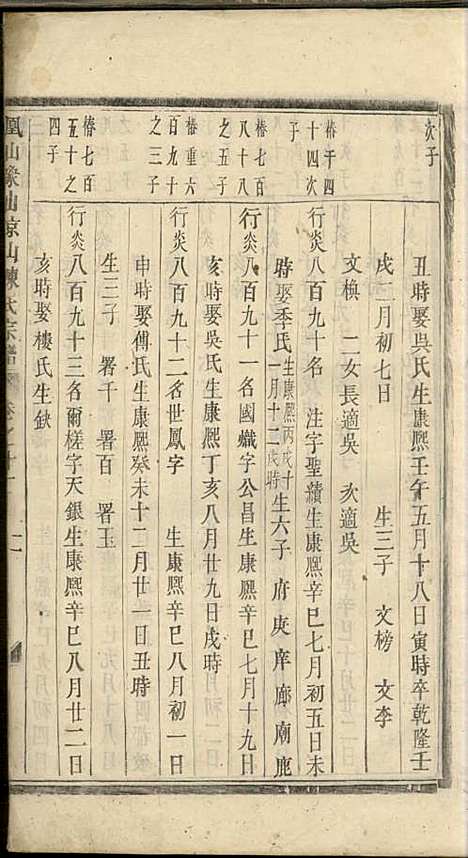 次子
丑時娶吳氏生康熙壬午五月十八日寅時卒乾隆壬
戌二月初七日　生三子　文榜　文李
文椣　二女長適吳　次適吳
椿千四
十四次
子
行炎八百九十名　注字聖續生康熙辛巳七月初五日未
時娶季氏生康熙丙戌十一月十二戌時生六子　府　庾　庠　廊　廟　鹿
椿七百
八十八
之五子
行炎八百九十一名國蟙字公昌生康熙辛巳七月十九日
亥時娶吳氏生康熙丁亥八月廿九日戌時
椿重六
百九十
之三子
行炎八百九十二名世鳳字　生康熙辛巳八月初一日
申時娶傅氏生康熙癸未十二月廿一日丑時
生三子　署千　署百　署玉
椿七百
五十之
四子
行炎八百九十三名爾槎字天銀生康熙辛巳八月廿二日
亥時娶樓氏生鈌
鳳山像山涼山陳氏宗譜